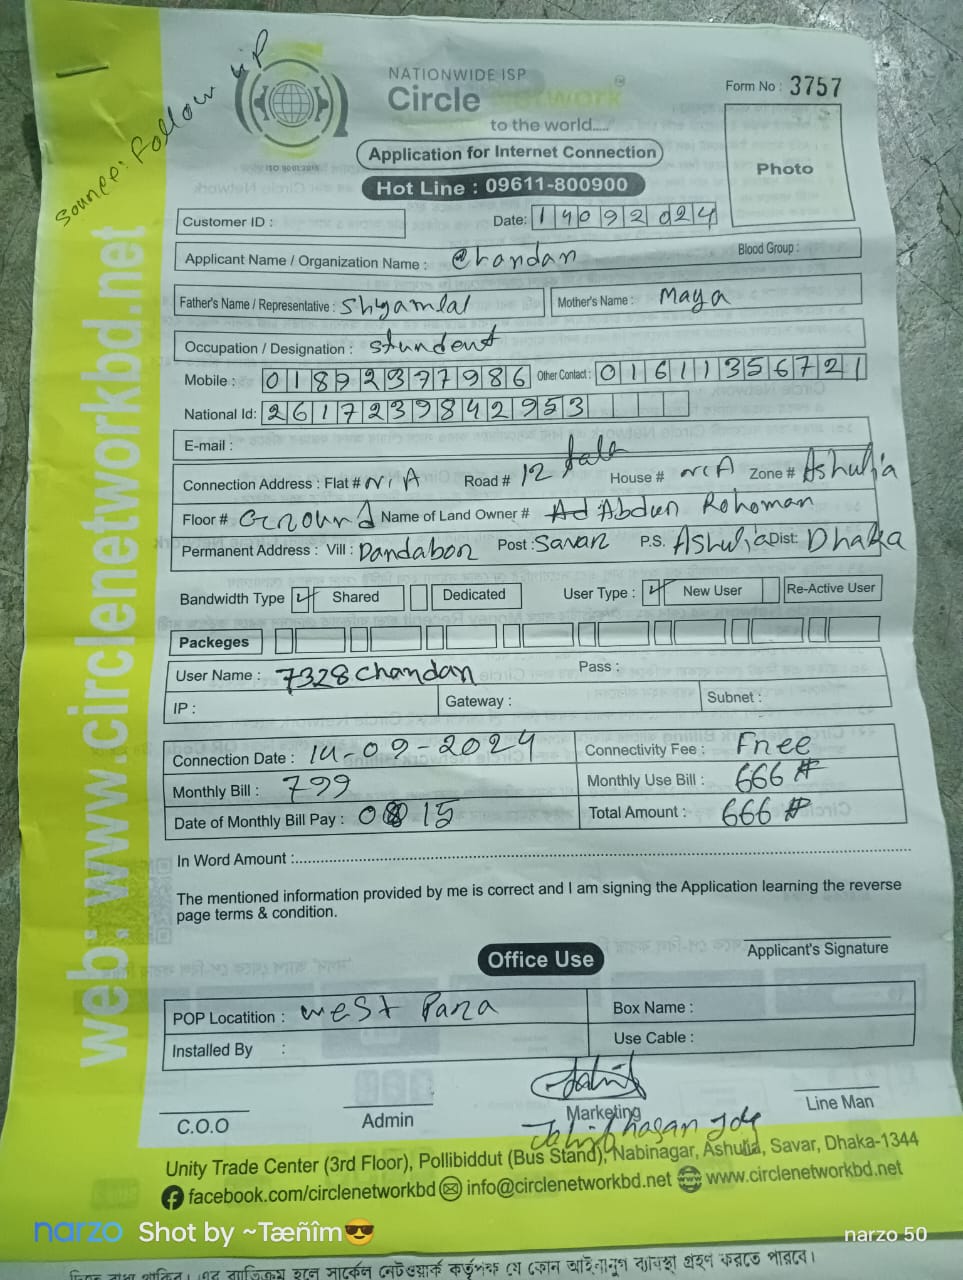 Source: Follow up
NATIONWIDE ISP
Circle Network
to the world.....
ISO 9001:2015
Form No : 3757
Application for Internet Connection
Photo
Hot Line : 09611-800900
Customer ID :
Date: 14092024
Applicant Name / Organization Name : Chandan Blood Group :
Father's Name / Representative : Shyamlal Mother's Name : Maya
Occupation / Designation : Stundent
Mobile : 01892377986 Other Contact : 01611356721
National Id: 2617239842953
E-mail :
Connection Address : Flat # N/A Road # 12 House # N/A Zone # Ashulia
Floor # Ground Name of Land Owner # Abdur Rohoman
Permanent Address : Vill : Dandabor Post : Savar P.S. Ashulia Dist: Dhaka
Bandwidth Type Shared Dedicated User Type : New User Re-Active User
Packeges
User Name : 7328chandan Pass :
IP : Gateway : Subnet :
Connection Date : 14-09-2024 Connectivity Fee : Free
Monthly Bill : 799 Monthly Use Bill : 666
Date of Monthly Bill Pay : 15 Total Amount : 666
In Word Amount :
The mentioned information provided by me is correct and I am signing the Application learning the reverse
page terms & condition.
Applicant's Signature
Office Use
POP Locatition : West Para Box Name :
Installed By : Use Cable :
C.O.O Admin Marketing Line Man
Unity Trade Center (3rd Floor), Pollibiddut (Bus Stand), Nabinagar, Ashulia, Savar, Dhaka-1344
facebook.com/circlenetworkbd info@circlenetworkbd.net www.circlenetworkbd.net
web: www.circlenetworkbd.net
narzo Shot by ~Tæñîm😎 narzo 50
হলে সার্কেল নেটওয়ার্ক কর্তৃপক্ষ যে কোন আইনানুগ ব্যবস্থা গ্রহণ করতে পারবে।